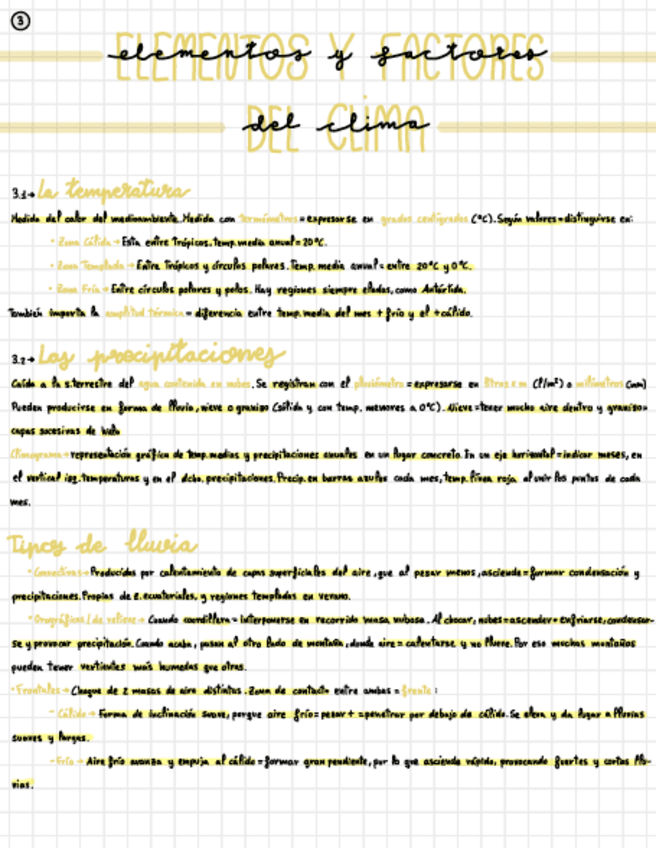 3
ELEMENTOS Y FACTORES
elementos y factores
DEL CLIMA
del clima
3.1→ La temperatura
Medida del calor del medioambiente. Medida con termómetros = expresarse en grados centígrados (°C). Según valores = distinguirse en:
· Zona Cálida → Esta entre Trópicos. temp. media anual = 20°C.
· Zona Templada → Entre Trópicos y círculos polares. Temp. media anual = entre 20°C y 0°C.
· Zona Fría → Entre círculos polares y polos. Hay regiones siempre eladas, como Antártida.
También importa la amplitud térmica = diferencia entre temp. media del mes + frío y el + cálido.
3.2→ Las precipitaciones
Caída a la s. terrestre del agua contenida en nubes. Se registran con el pluviómetro = expresarse en litros x m (l/m²) o milímetros (mm)
Pueden producirse en forma de lluvia, nieve o granizo (sólida y con temp. menores a 0°C). Nieve = tener mucho aire dentro y granizo =
capas sucesivas de hielo
Climograma → representación gráfica de temp. medias y precipitaciones anuales en un lugar concreto. En un eje horizontal = indicar meses, en
el vertical izq. temperaturas y en el dcho. precipitaciones. Precip. en barras azules cada mes, temp. línea roja al unir los puntos de cada
mes.
Tipos de lluvia
· Convectivas → Producidas por calentamiento de capas superficiales del aire, que al pesar menos, asciende = formar condensación y
precipitaciones. Propias de z. ecuatoriales, y regiones templadas en verano.
· Orográficas / de relieve → Cuando cordillera = interponerse en recorrido masa nubosa. Al chocar, nubes = ascender = enfriarse, condensar-
se y provocar precipitación. Cuando acaba, pasan al otro lado de montaña, donde aire = calentarse y no llueve. Por eso muchas montañas
pueden tener vertientes más humedas que otras.
· Frontales → Choque de 2 masas de aire distintas. Zona de contacto entre ambas = frente:
- Cálido → Forma de inclinación suave, porque aire frío = pesar + = penetrar por debajo de cálido. Se eleva y da lugar a lluvias
suaves y largas.
- Frío → Aire frío avanza y empuja al cálido = formar gran pendiente, por lo que asciende rápido, provocando fuertes y cortas llu-
vias.